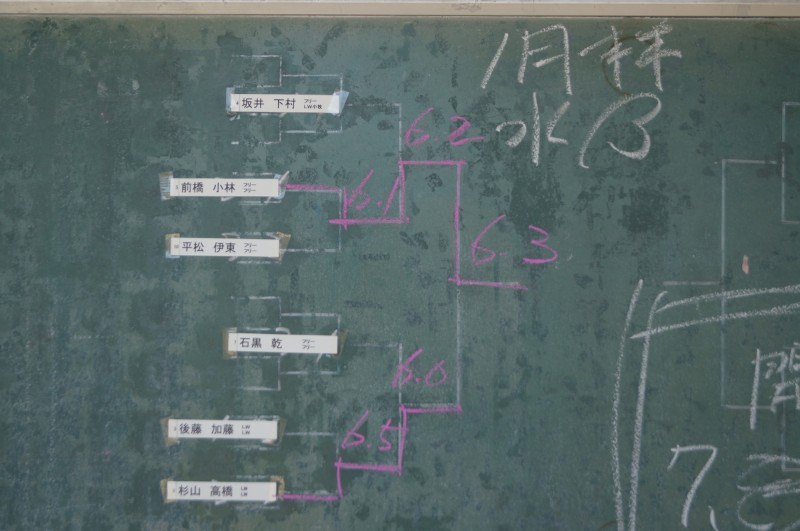 1月杯
水 B
坂井 下村 フリー LW小牧
6 2
前橋 小林 フリー フリー
6.1
平松 伊東 フリー フリー
6-3
石黒 乾 フリー フリー
6.0
後藤 加藤 LW LW
6.5
杉山 高橋